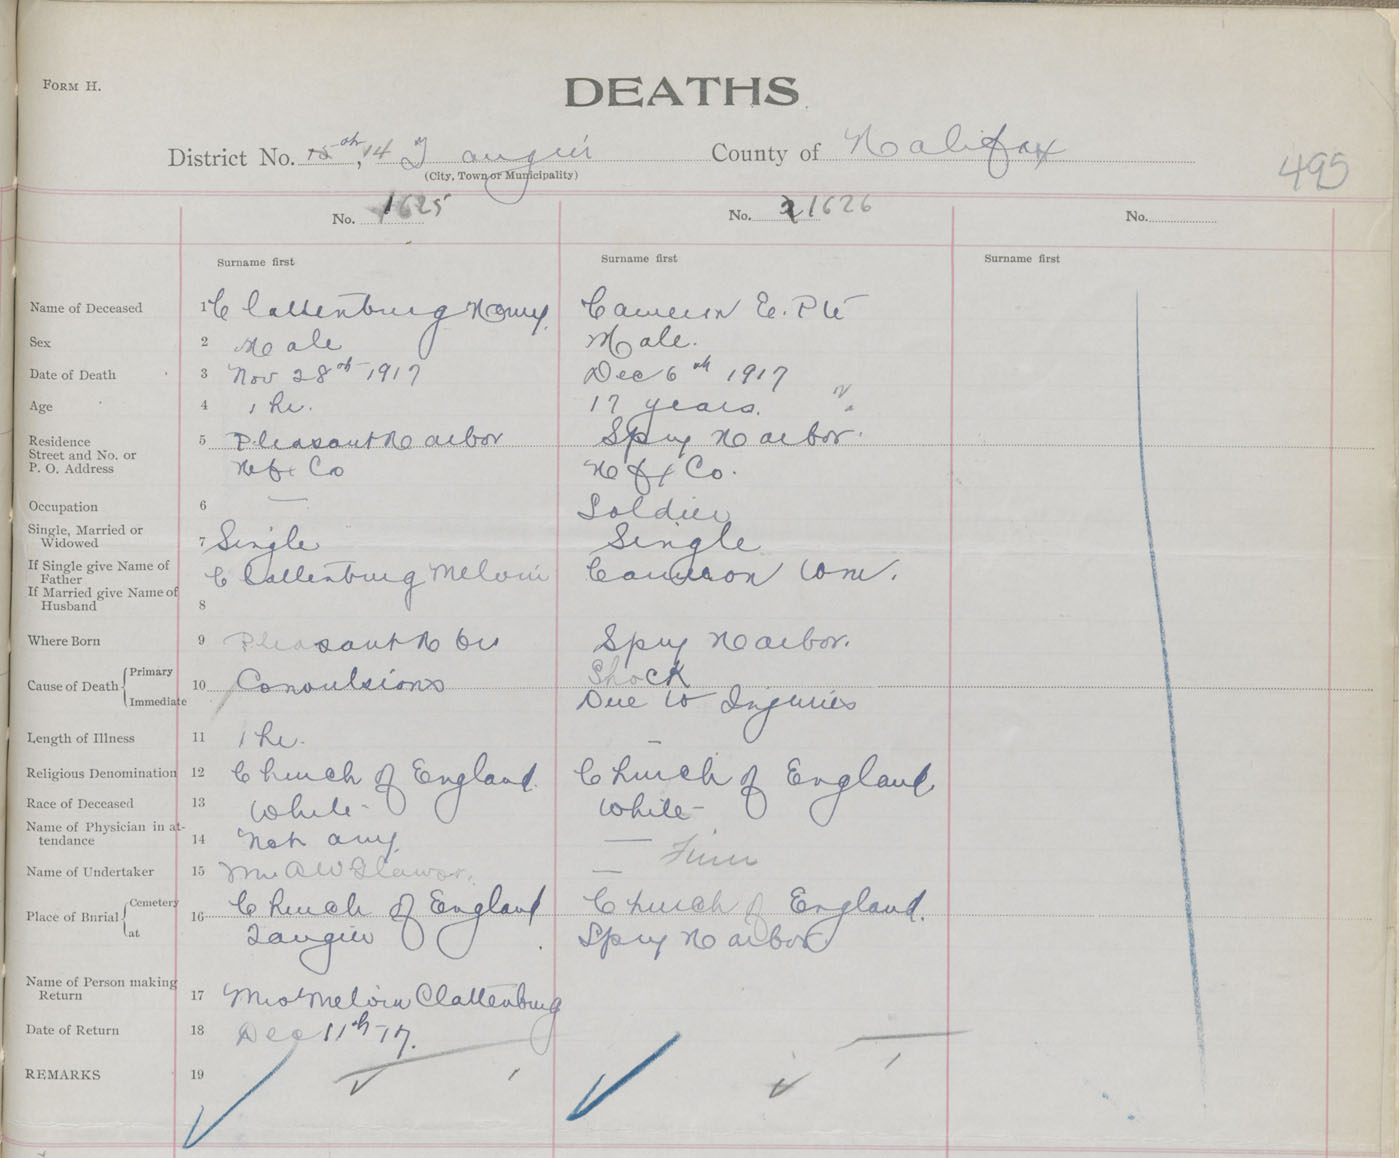 FORM H.
DEATHS
District No. 15th, 14 Tangier County of Halifax
(City, Town or Municipality)
495
No. 1625 No. 2 1626 No.
Surname first Surname first Surname first
Name of Deceased 1 Clattenburg Henry Cameron E. Pte
Sex 2 Male Male.
Date of Death 3 Nov 28th 1917 Dec 6th 1917
Age 4 1 hr. 17 years.
Residence 5 Pleasant Harbor Spry Harbor.
Street and No. or
P. O. Address Hfx Co Hfx Co.
Occupation 6 — Soldier
Single, Married or
Widowed 7 Single Single
If Single give Name of
Father Clattenburg Melvin Cameron Wm.
If Married give Name of
Husband 8
Where Born 9 Pleasant Hbr Spry Harbor.
Cause of Death Primary Immediate 10 Convulsions Shock
Due to Injuries
Length of Illness 11 1 hr. —
Religious Denomination 12 Church of England. Church of England
Race of Deceased 13 White - White -
Name of Physician in at-
tendance 14 Not any. —
Name of Undertaker 15 Mr A W —
Place of Burial Cemetery at 16 Church of England Church of England.
Tangier Spry Harbor
Name of Person making
Return 17 Mrs Melvin Clattenburg
Date of Return 18 Dec 11th-17.
REMARKS 19